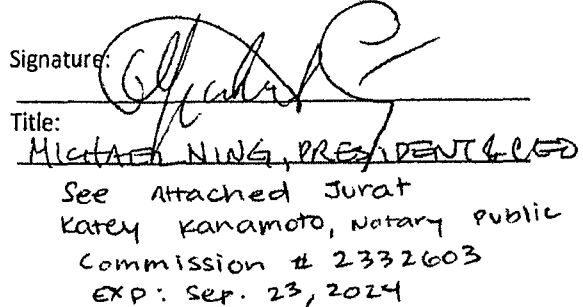 Signature:
Title:
MICHAEL NING, PRESIDENT & CEO
See Attached Jurat
Karey Kanamoto, Notary Public
Commission # 2332603
EXP: Sep. 23, 2024